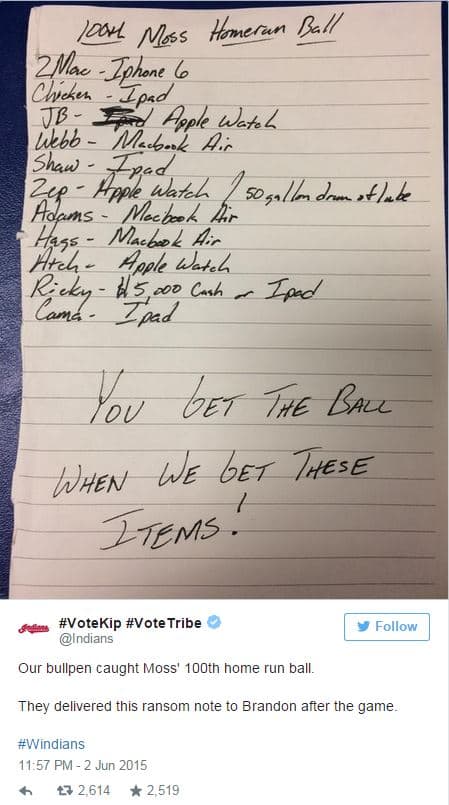 100th Moss Homerun Ball
2Mac - Iphone 6
Chicken - Ipad
JB - Apple Watch
Webb - Macbook Air
Shaw - Ipad
Zep - Apple Watch / 50 gallon drum of lube
Adams - Macbook Air
Hags - Macbook Air
Atch - Apple Watch
Ricky - $5,000 Cash or Ipad
Cama - Ipad
You GET THE BALL
WHEN WE GET THESE
ITEMS!
Indians
#VoteKip #VoteTribe
@Indians
Follow
Our bullpen caught Moss' 100th home run ball.
They delivered this ransom note to Brandon after the game.
#Windians
11:57 PM - 2 Jun 2015
2,614 2,519